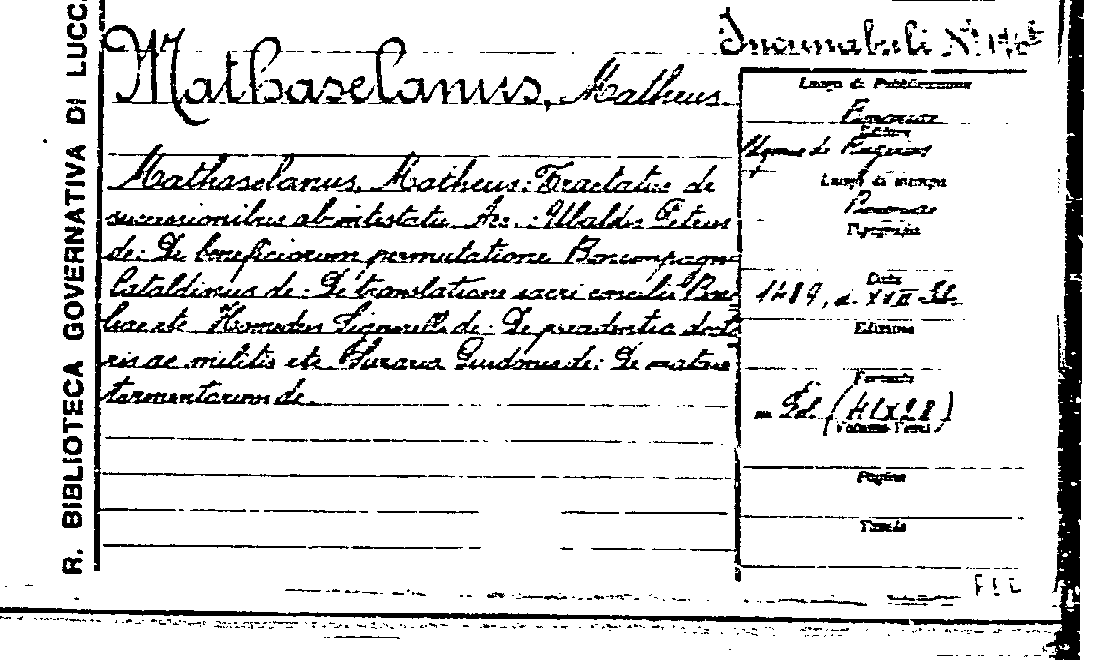 R. BIBLIOTECA GOVERNATIVA DI LUCC
Incunabuli N°
Mathaselanus, Matheus.
Mathaselanus, Matheus: Tractatus de
successionibus ab intestatu Acc.: Ubaldis Petrus
de: De beneficiorum permutatione Boncompagn
Cataldinus de: De translatione sacri concilii Basi
leae etc Homedes Signorellis de: De precedentia docto
ris ac militis etc Suzaria Guidonus de: De materia
tormentorum de.
Luogo di Pubblicazione
Editore
Ugone de
Luogo di stampa
Tipografia
Data
1489, d. XXII
Edizione
Formato
in fol. (41x28)
Volume Pezzi
Pagine
Tavole